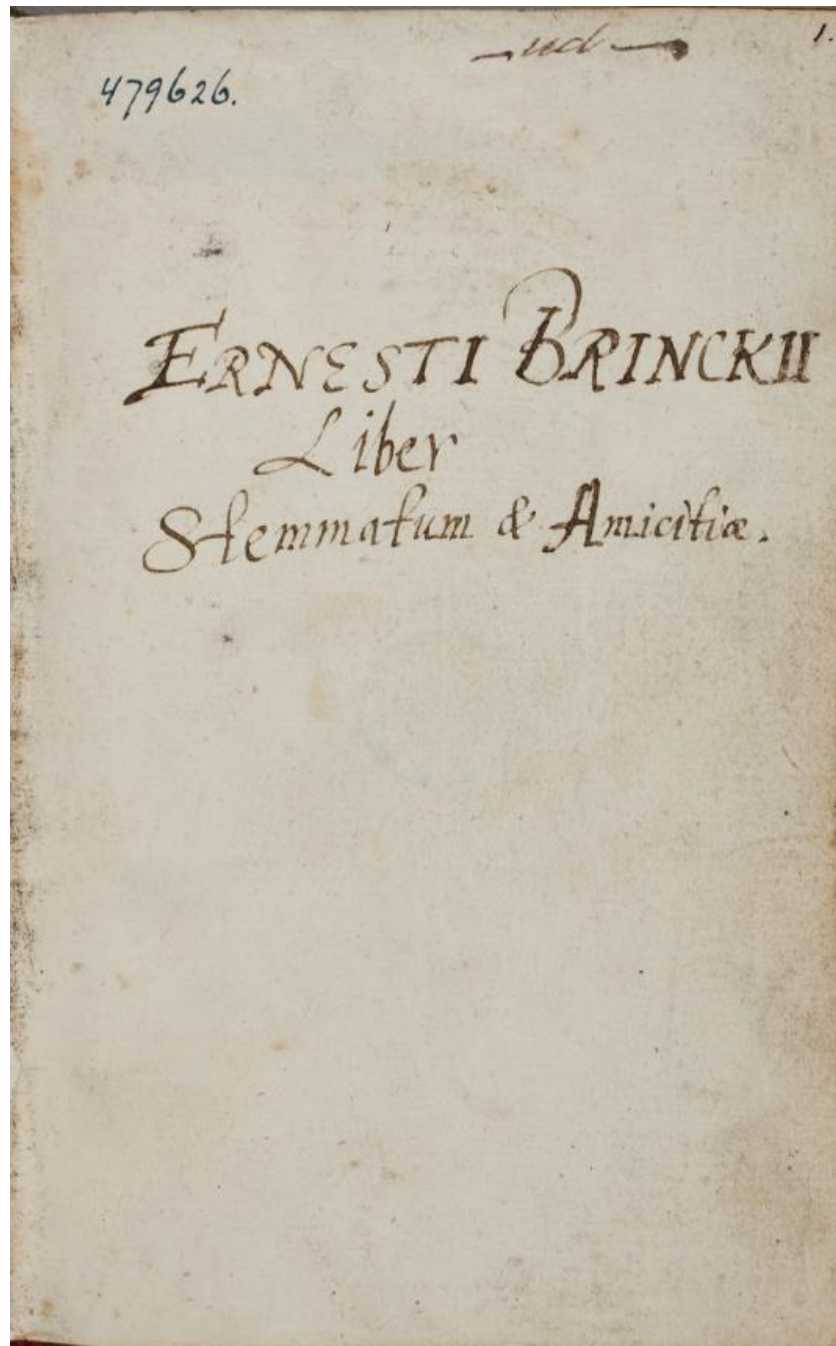 1.
479626.
ERNESTI BRINCKII
Liber
Stemmatum & Amicitiæ.